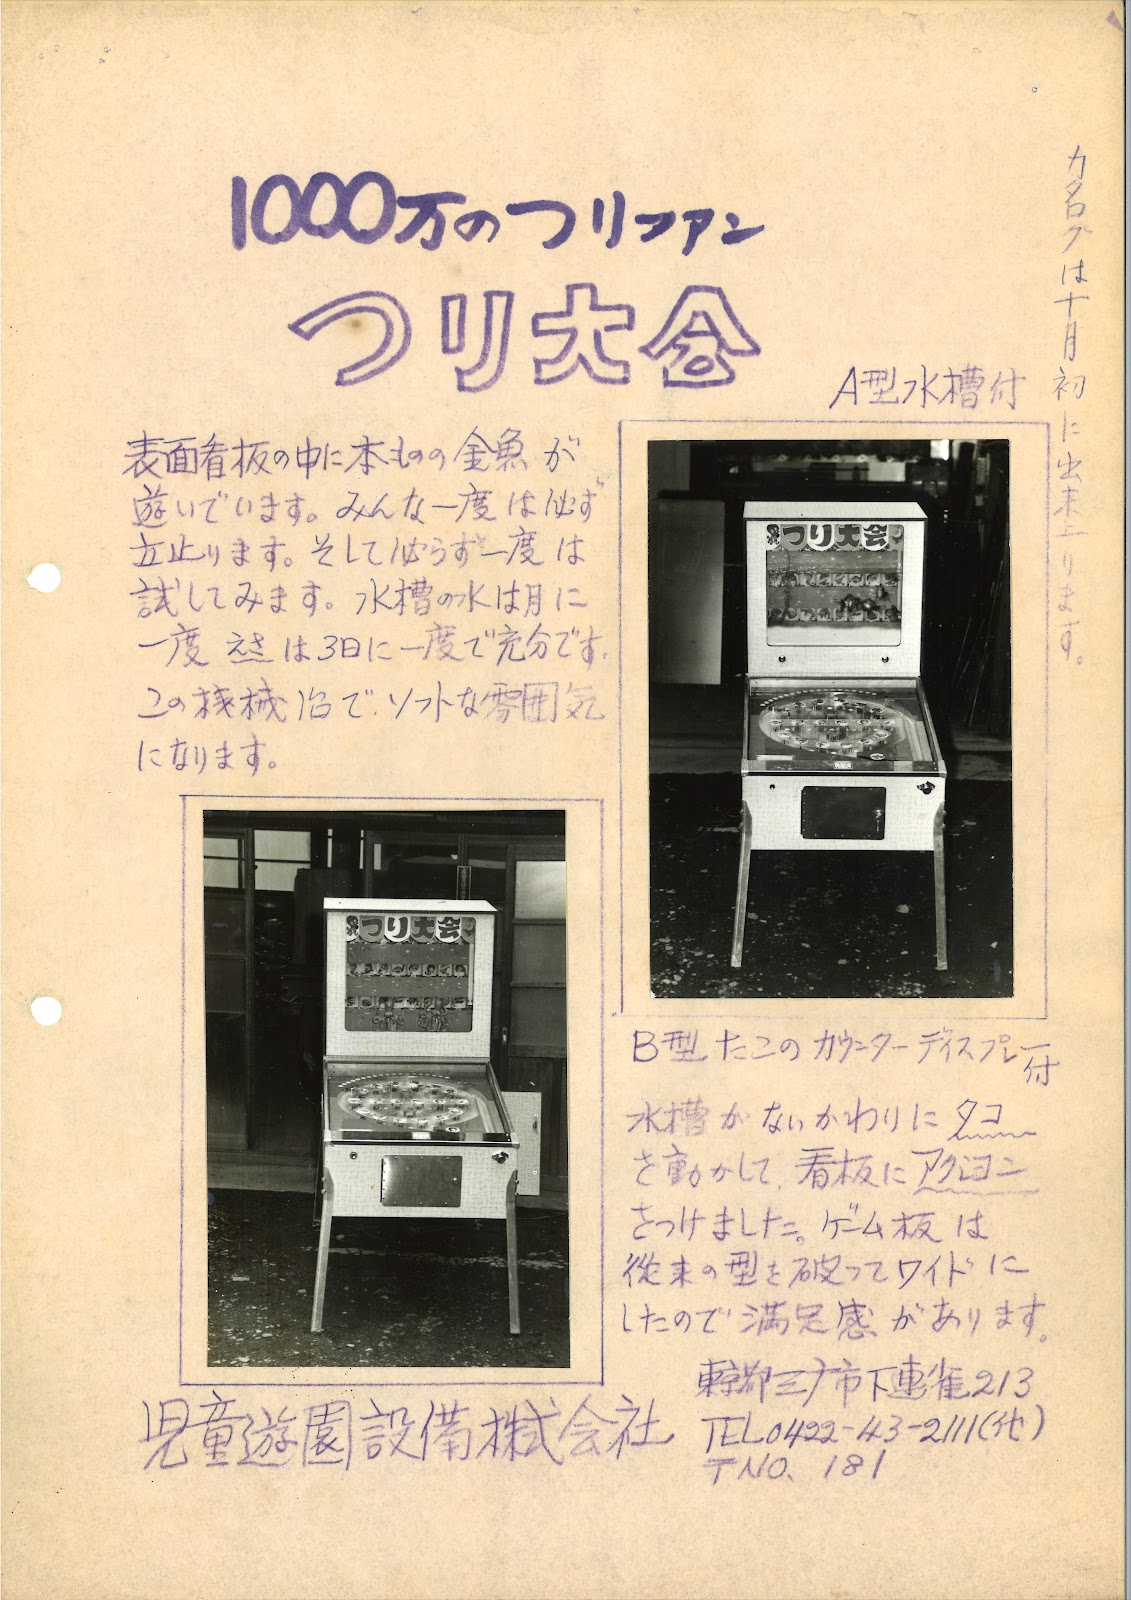 1000万のつりファン
つり大会
カタログは十月初に出来上ります。
A型水槽付
表面看板の中に本ものの金魚が
遊いでいます。みんな一度は必ず
立止ります。そして必らず一度は
試してみます。水槽の水は月に
一度 えさは3日に一度で充分です。
この機械1台で、ソフトな雰囲気
になります。
つり大会
つり大会
B型 たこのカウンターディスプレー付
水槽がないかわりにタコ
を動かして、看板にアクション
をつけました。ゲーム板は
従来の型を破ってワイドに
したので満足感があります。
児童遊園設備株式会社
東京都三鷹市下連雀213
TEL0422-43-2111(代)
〒NO. 181